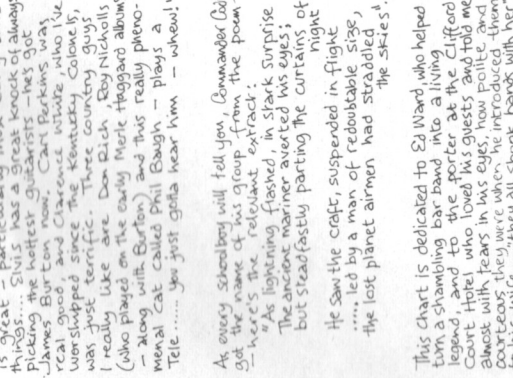 is great – particularly
things.... Elvis has a great knack of always
picking the hottest guitarists – he's got
James Burton now. Carl Perkins was
real good, and Clarence White, who I've
worshipped since the Kentucky Colonels,
was just terrific. Three country guys
I really like are Don Rich, Roy Nicholls
(who played on the early Merle Haggard album
– along with Burton) and this really pheno-
menal cat called Phil Baugh – plays a
Tele ...... you just gotta hear him – whew!
As every schoolboy will tell you, Commander Cody
got the name of his group from the poem
– here's the relevant extract:
"As lightning flashed, in stark surprise
The ancient mariner averted his eyes;
but steadfastly parting the curtains of
night
He saw the craft, suspended in flight
..... led by a man of redoubtable size,
the lost planet airmen had straddled
the skies".
This Chart is dedicated to Ed Ward, who helped
turn a shambling bar band into a living
legend, and to the porter at the Clifford
Court Hotel who loved his guests and told me
almost with tears in his eyes, how polite and
courteous they were when he introduced them
to his wife.... "they all shook hands with her"